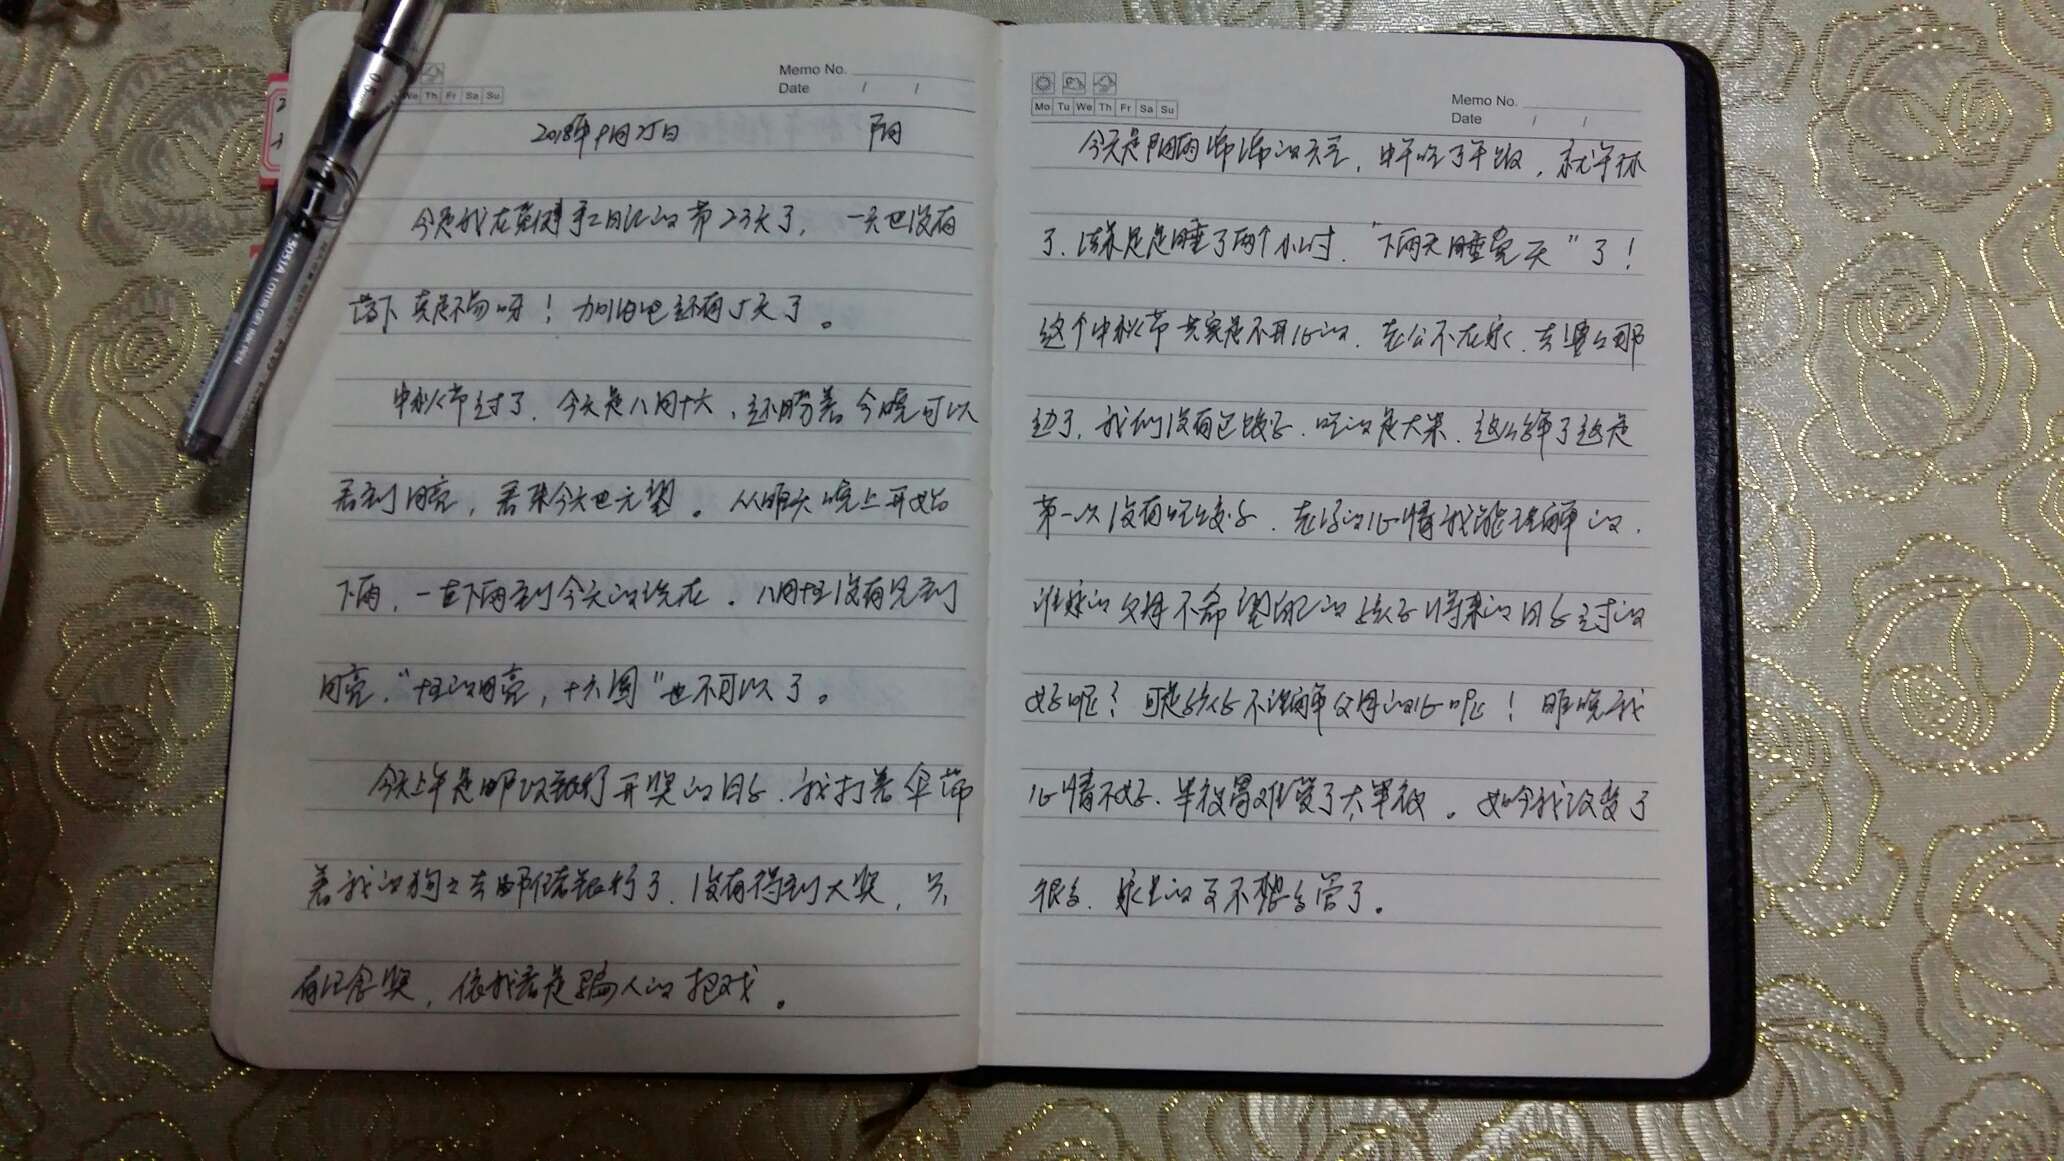 We Th Fr Sa Su
Memo No.
Date / /
2018年9月25日 阴
今是我在 手工日记的第23天了，一天也没有
落下真是不易呀！加油吧还有5天了。
中秋节过了，今天是八月十六，还盼着今晚可以
看到月亮，看来今天也无望。从昨天晚上开始
下雨，一直下雨到今天的现在。八月十五没有见到
月亮，“十五的月亮，十六圆”也不可以了。
今天上午是邮政银行开奖的日子，我打着伞带
着我的狗狗去邮储银行了，没有得到大奖，只
有纪念奖，依我看是骗人的把戏。
Mo Tu We Th Fr Sa Su
Memo No.
Date / /
今天是阴雨 的天气，中午吃了午饭，就午休
了，结果是睡了两个小时，“下雨天睡觉天”了！
这个中秋节 是不开心的，老公不在家，去婆婆那
边了，我们没有包饺子，吃的是大米，这么年了这是
第一次没有吃饺子，老 的心情我能理解的，
谁家的父母不希望自己的孩子将来的日子过的
好呢？可是孩子不理解父母的心呢！昨晚我
心情不好，半夜冒 了大半夜。如今我改变了
很多，家里的事不想多管了。